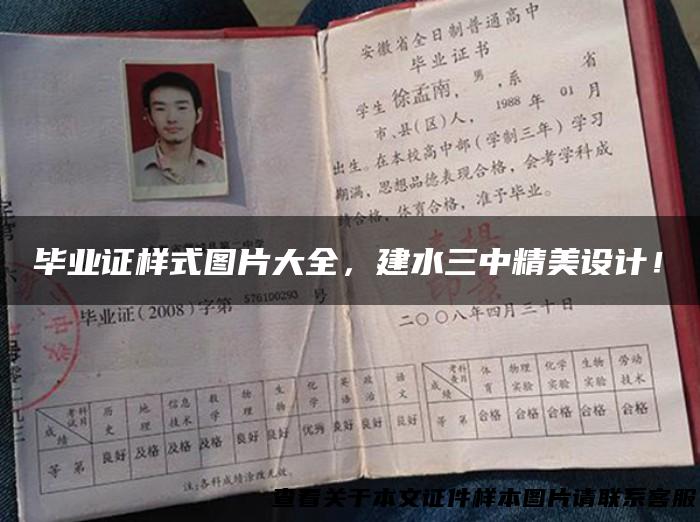 安徽省全日制普通高中
毕业证书
学生徐孟南，男，系 省
市、县(区)人，1988年01月
出生。在本校高中部(学制三年)学习
期满，思想品德表现合格，会考学科成
绩合格，体育合格，准予毕业。
毕业证样式图片大全，建水三中精美设计！
毕业证(2008)字第576100293号
二〇〇八年四月三十日
考试科目 历史 地理 信息技术 数学 物理 生物 化学 英语 政治 语文
成绩
等第 良好 及格 及格 及格 良好 良好 优秀 良好 良好 良好
注:各科成绩涂改无效。
考科查目 体育 物理实验 化学实验 生物实验 劳动技术
成绩
等第 合格 合格 合格 合格 合格
查看关于本文证件样本图片请联系客服